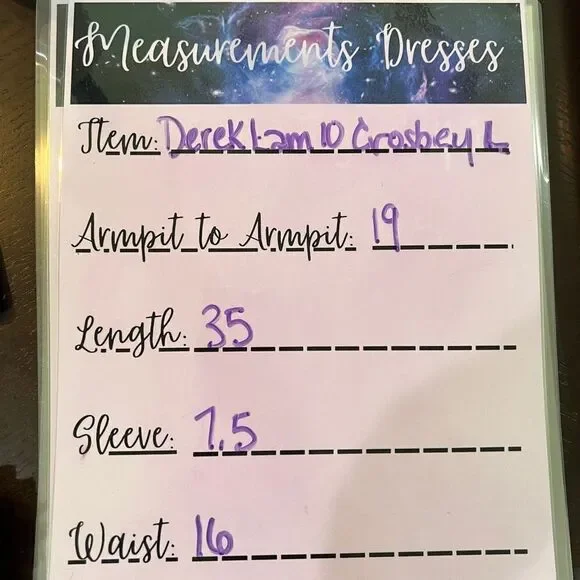 Measurements Dresses
Item: Derek Lam 10 Crosbey L
Armpit to Armpit: 19
Length: 35
Sleeve: 7.5
Waist: 16